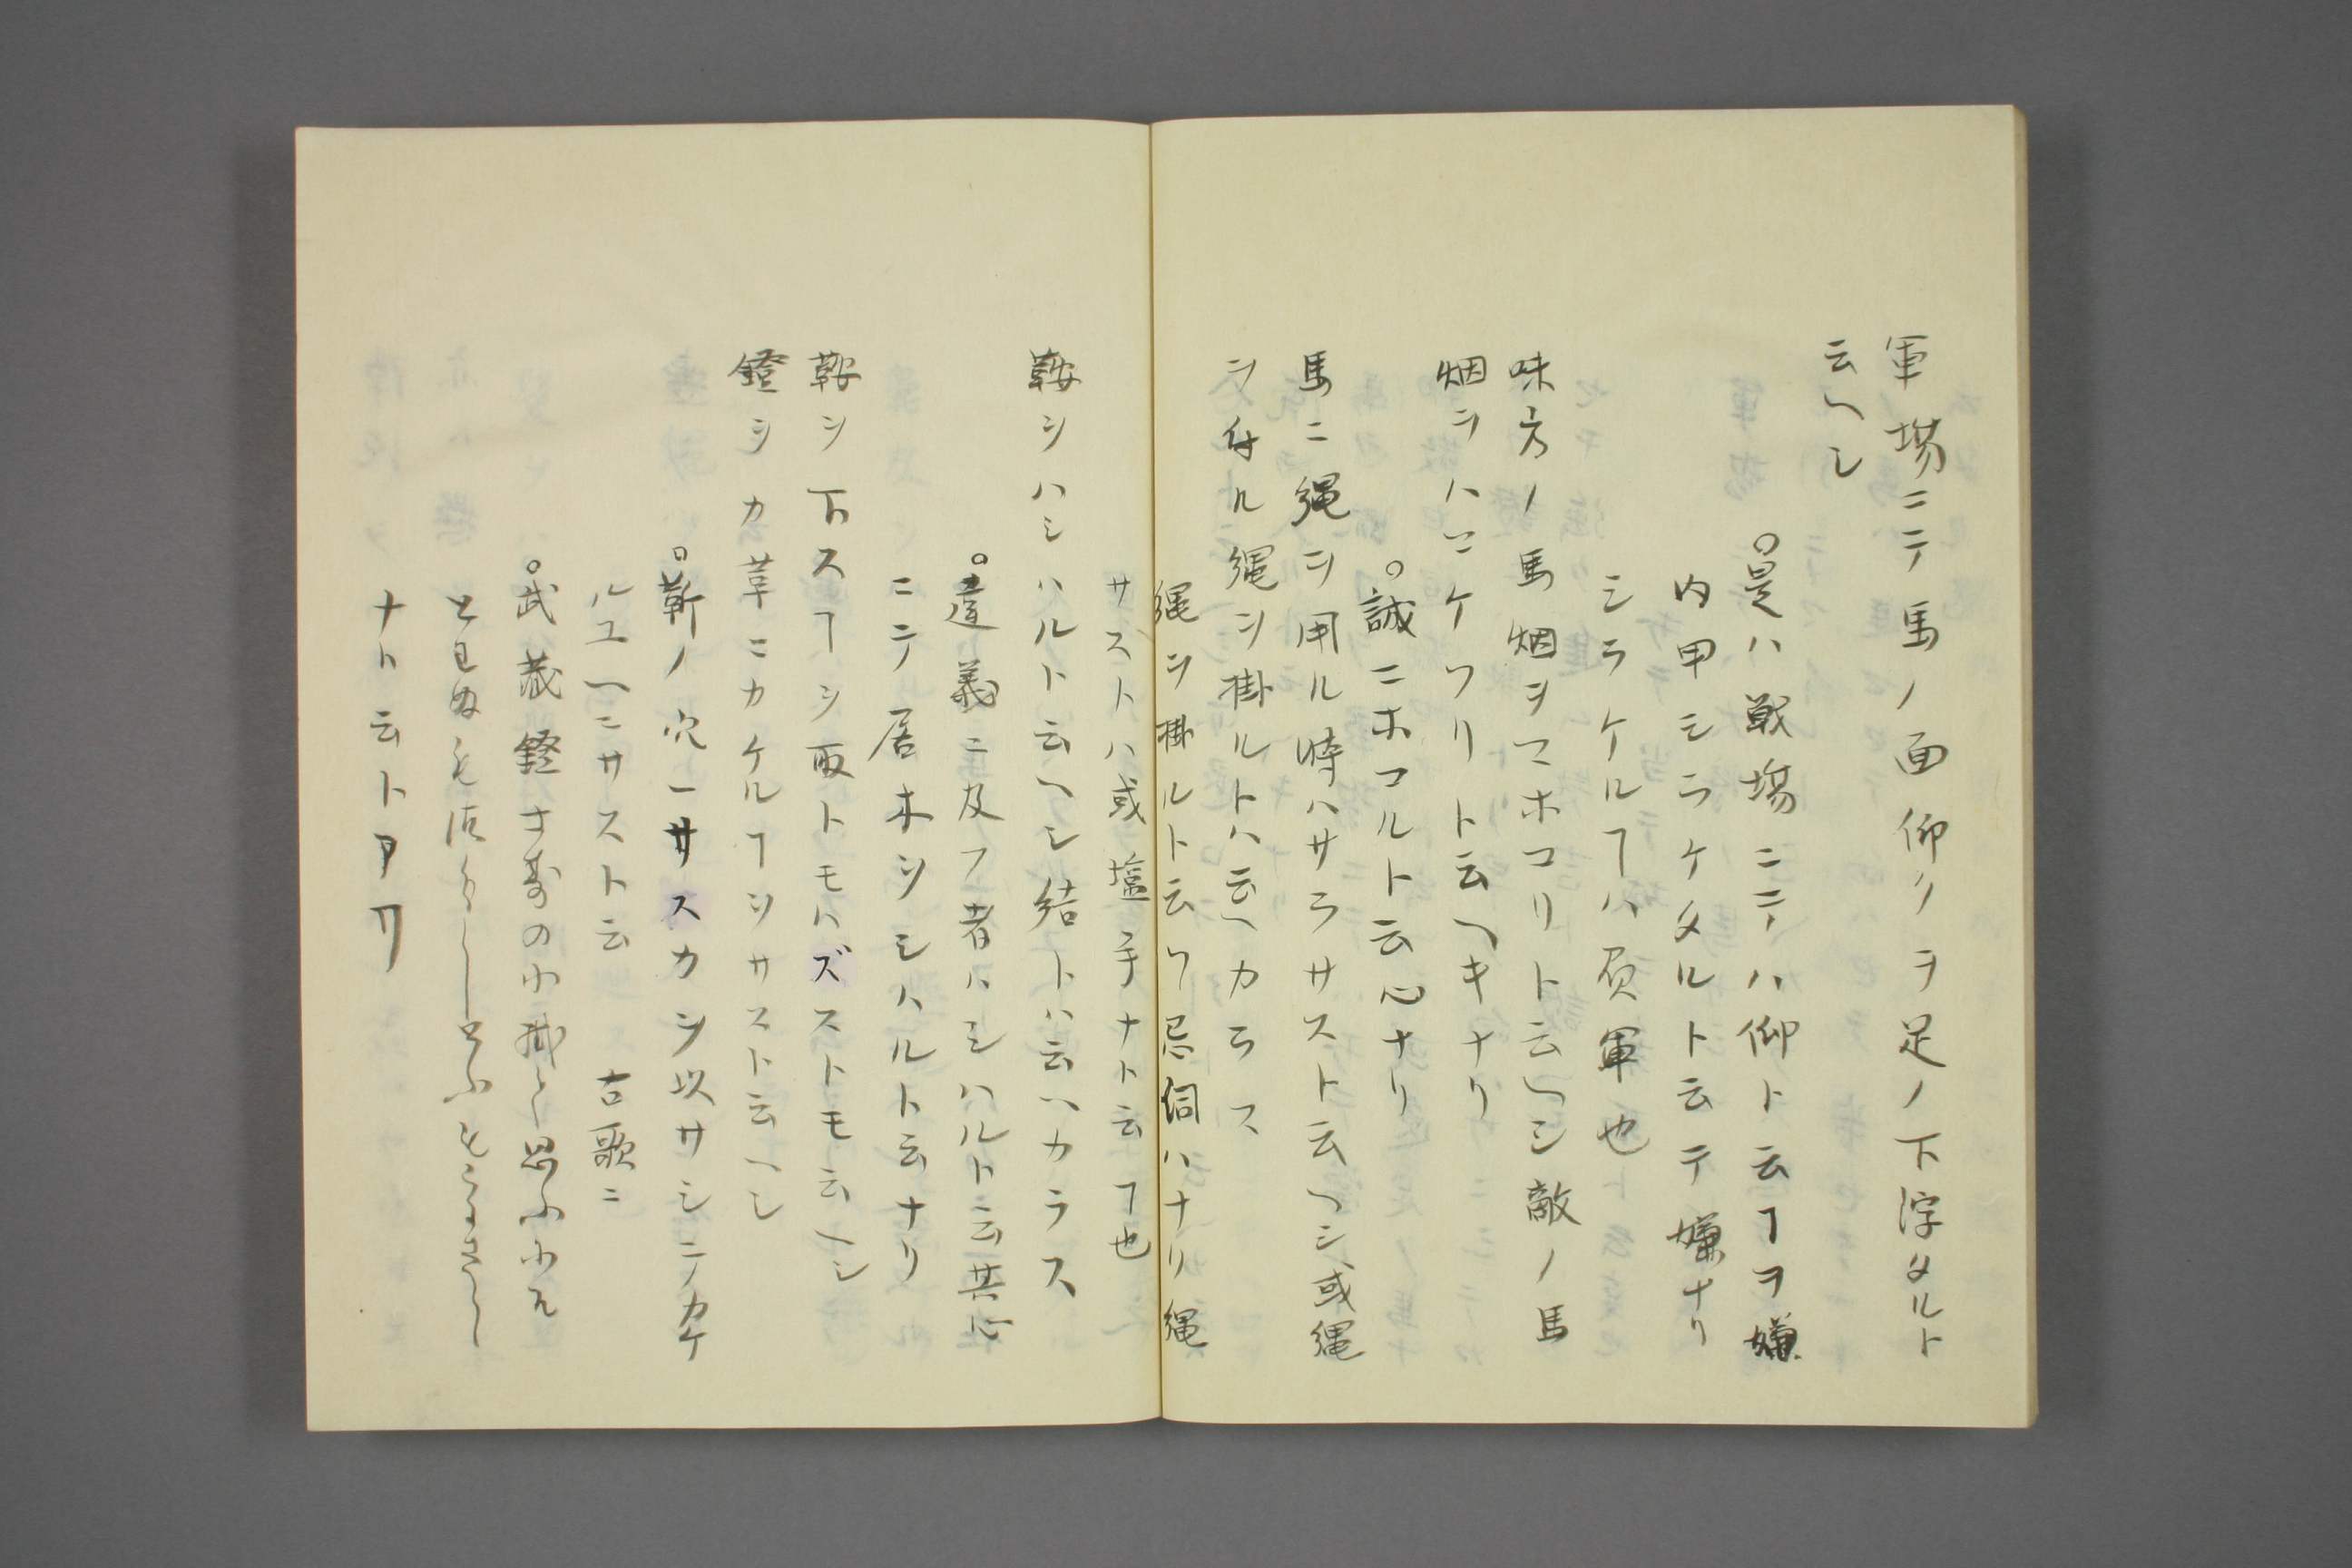 軍場ニテ馬ノ面仰クヲ足ノ下浮タルト
云ヘシ
○是ハ戦場ニテハ仰ト云ヿヲ嫌
内甲シラケタルト云テ嫌ナリ
シラケルヿハ負軍也
味方ノ馬烟ヲマホコリト云ヘシ敵ノ馬
烟ヲハマケフリト云ヘキナリ
○誠ニホコルト云心ナリ
馬ニ縄ヲ用ル時ハサラサスト云ヘシ或縄
ヲ付ル縄ヲ掛ルトハ云ヘカラス
縄ヲ掛ルト云ヿ忌詞ハナリ縄
サストハ或塩手ナト云ヿ也
鞍ヲハシハルト云ヘシ結トハ云ハカラス
○違義ニ及フ者ハシハルト云其心
ニテ居木ヲシハルト云ナリ
鞍ヲ下スヿヲ取トモハズストモ云ヘシ
鐙ヲカ革ニカケルヿヲサスト云ヘシ
○靳ノ穴ヘサスカヲ以サシニカケ
ルユヘニサスト云 古歌ニ
○武蔵鐙
とはぬも
ナト云トアリ